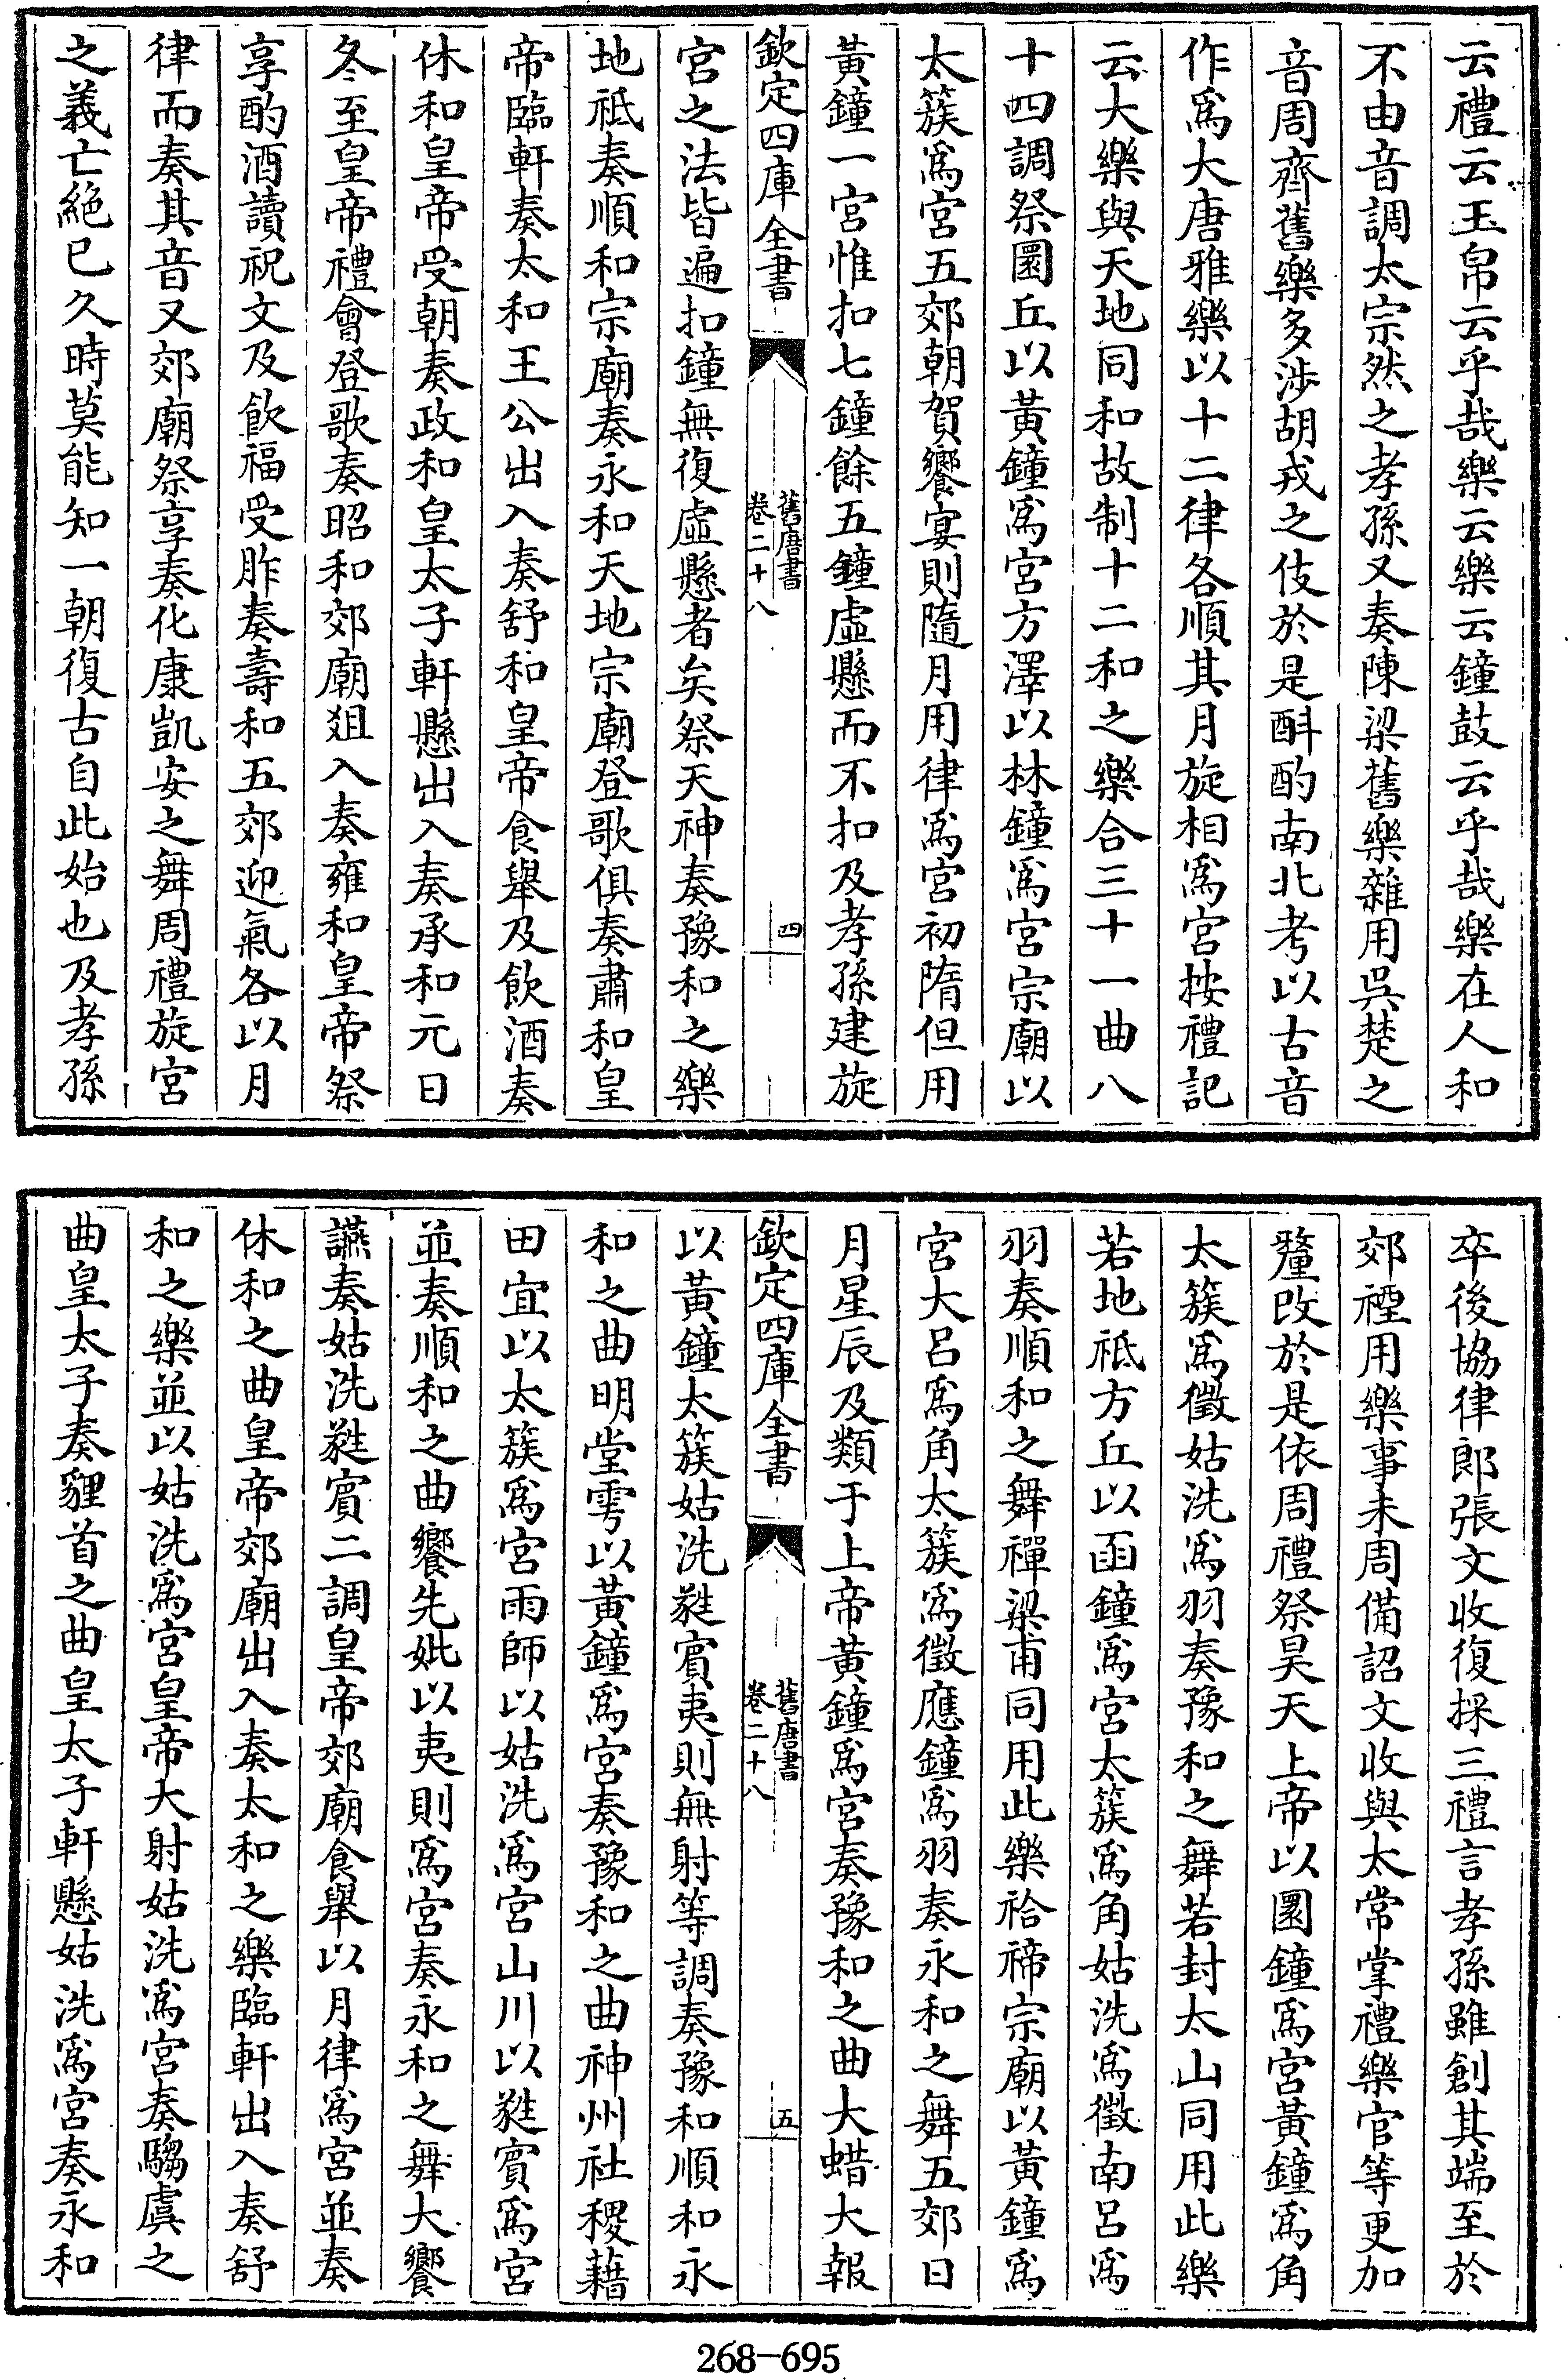 云禮云玉帛云乎哉樂云樂云鐘鼓云乎哉樂在人和
不由音調太宗然之孝孫又奏陳梁舊樂雜用吳楚之
音周齊舊樂多涉胡戎之伎於是斟酌南北考以古音
作爲大唐雅樂以十二律各順其月旋相爲宮按禮記
云大樂與天地同和故制十二和之樂合三十一曲八
十四調祭圜丘以黃鐘爲宮方澤以林鐘爲宮宗廟以
太簇爲宮五郊朝賀饗宴則隨月用律爲宮初隋但用
黃鐘一宮惟扣七鐘餘五鐘虛懸而不扣及孝孫建旋
欽定四庫全書
舊唐書
卷二十八
四
宮之法皆遍扣鐘無復虛懸者矣祭天神奏豫和之樂
地祇奏順和宗廟奏永和天地宗廟登歌俱奏肅和皇
帝臨軒奏太和王公出入奏舒和皇帝食舉及飲酒奏
休和皇帝受朝奏政和皇太子軒懸出入奏承和元日
冬至皇帝禮會登歌奏昭和郊廟俎入奏雍和皇帝祭
享酌酒讀祝文及飲福受胙奏壽和五郊迎氣各以月
律而奏其音又郊廟祭享奏化康凱安之舞周禮旋宮
之義亡絕已久時莫能知一朝復古自此始也及孝孫
卒後協律郎張文收復採三禮言孝孫雖創其端至於
郊禋用樂事未周備詔文收與太常掌禮樂官等更加
釐改於是依周禮祭昊天上帝以圜鐘爲宮黃鐘爲角
太簇爲徵姑洗爲羽奏豫和之舞若封太山同用此樂
若地祇方丘以函鐘爲宮太簇爲角姑洗爲徵南呂爲
羽奏順和之舞禪梁甫同用此樂祫禘宗廟以黃鐘爲
宮大呂爲角太簇爲徵應鐘爲羽奏永和之舞五郊日
月星辰及類于上帝黃鐘爲宮奏豫和之曲大蜡大報
欽定四庫全書
舊唐書
卷二十八
五
以黃鐘太簇姑洗蕤賓夷則無射等調奏豫和順和永
和之曲明堂雩以黃鐘爲宮奏豫和之曲神州社稷藉
田宜以太簇爲宮雨師以姑洗爲宮山川以蕤賓爲宮
並奏順和之曲饗先妣以夷則爲宮奏永和之舞大饗
讌奏姑洗蕤賓二調皇帝郊廟食舉以月律爲宮並奏
休和之曲皇帝郊廟出入奏太和之樂臨軒出入奏舒
和之樂並以姑洗爲宮皇帝大射姑洗爲宮奏騶虞之
曲皇太子奏貍首之曲皇太子軒懸姑洗爲宮奏永和
268-695